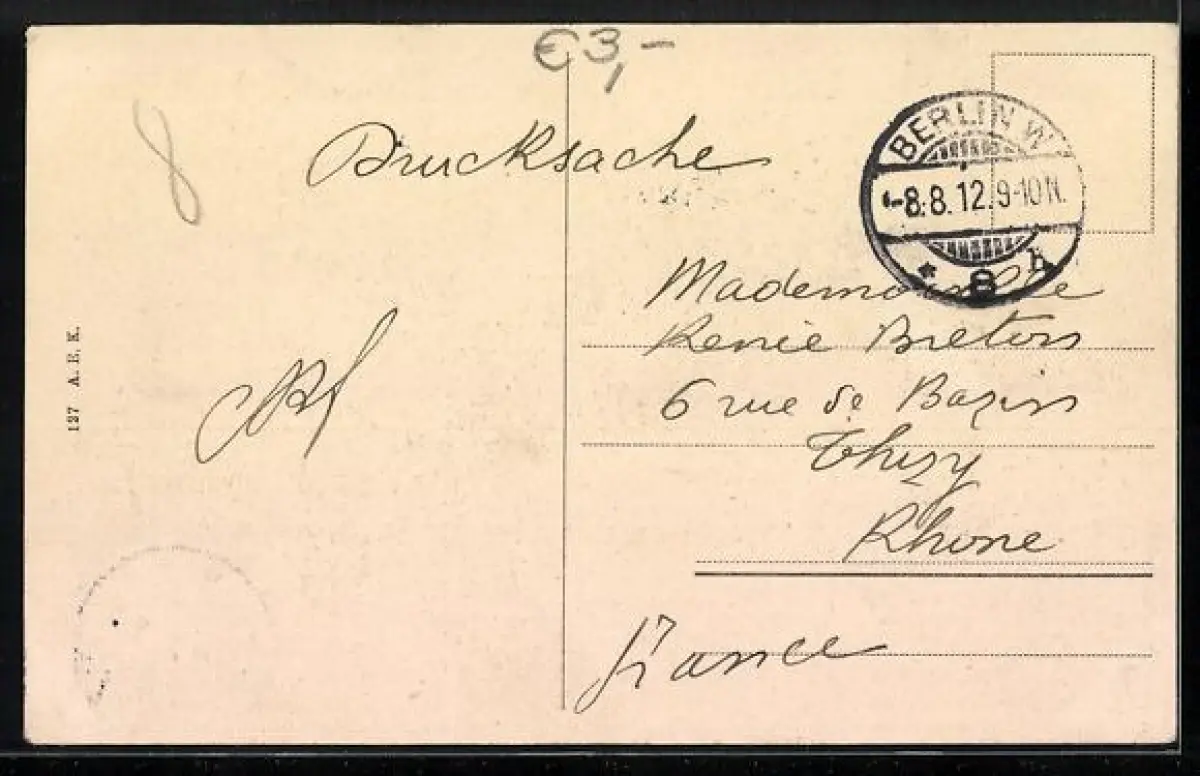 €3,-
8
Drucksache
BERLIN W
-8.8.12.9-10N.
* 8 h
Mademoiselle
Renée Breton
6 rue de Bazin
Thizy
Rhone
France
127 A. E. K.